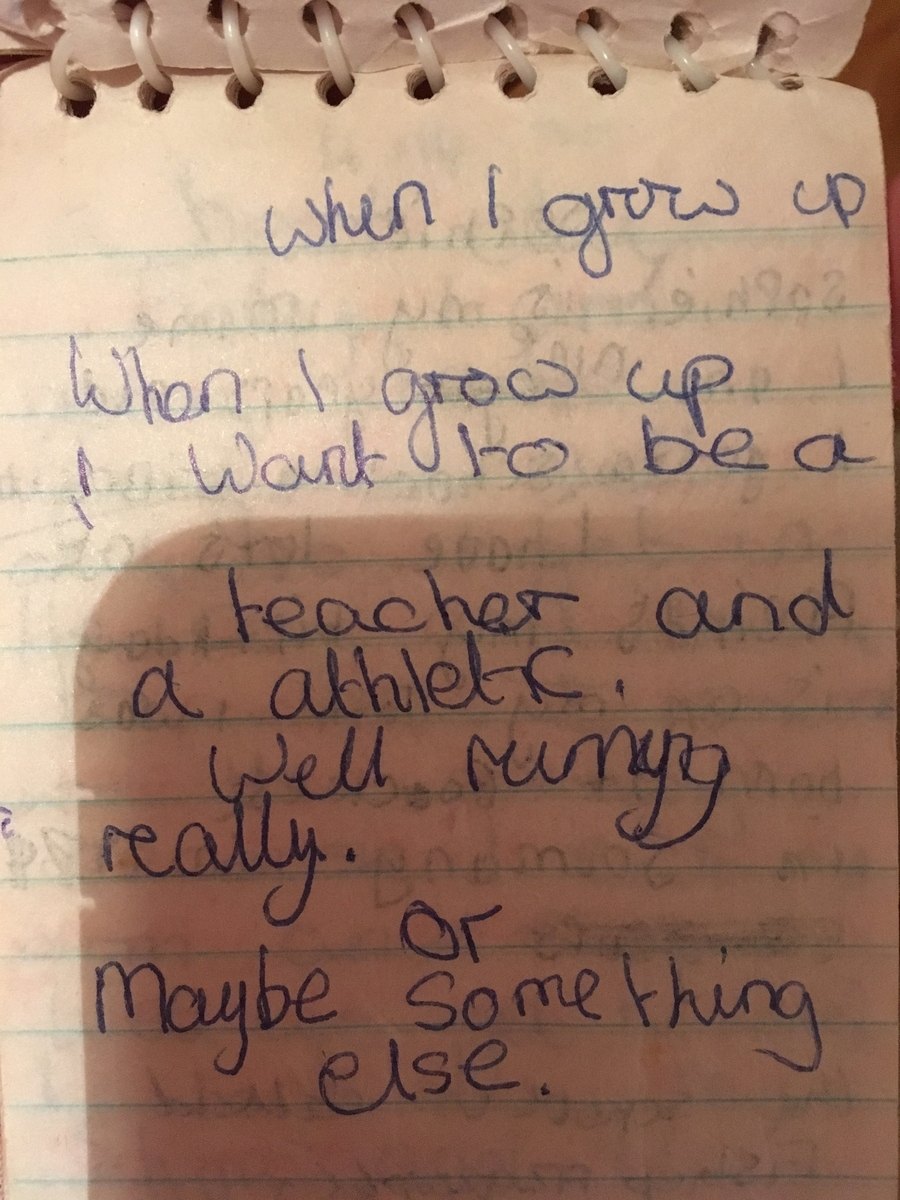 when I grow up
When I grow up
I want to be a
teacher and
a athletic.
Well runnyg
really.
or
Maybe something
else.